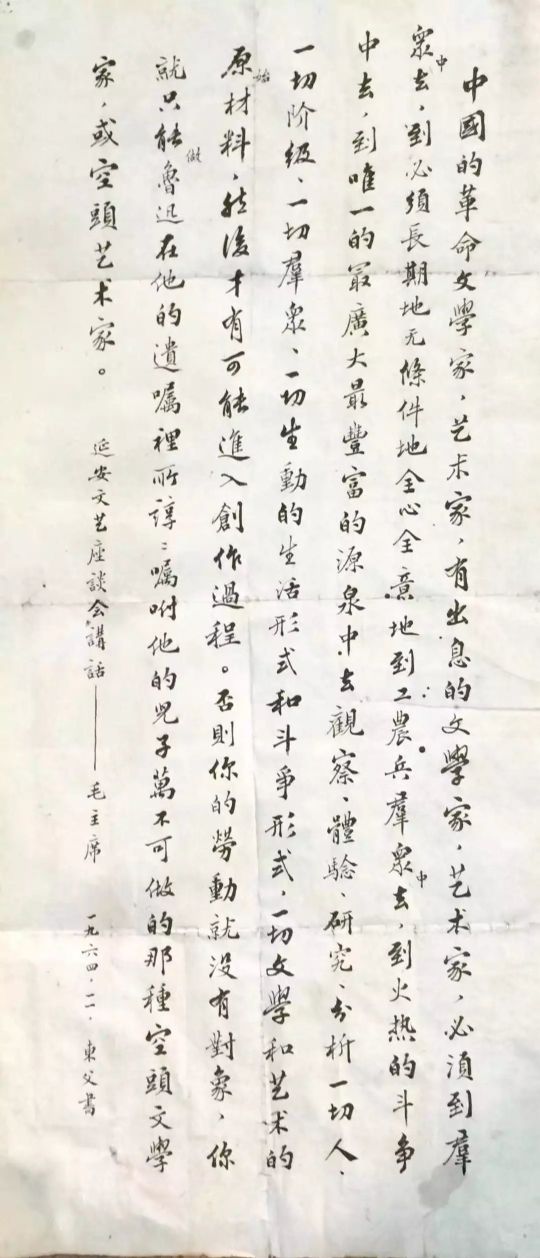 中國的革命文學家，艺术家，有出息的文學家，艺术家，必須到羣
衆中去，到必須長期地无條件地全心全意地到工農兵羣衆中去，到火热的斗争
中去，到唯一的最廣大最豐富的源泉中去觀察、體驗、研究、分析一切人、
一切阶级、一切羣衆、一切生動的生活形式和斗爭形式，一切文學和艺术的
原始材料，然後才有可能進入創作過程。否則你的勞動就没有對象，你
就只能做魯迅在他的遺嘱裡所諄〻嘱咐他的兒子萬不可做的那種空頭文學
家，或空頭艺术家。
延安文艺座談会講話——毛主席
一九六四．一一．東父書